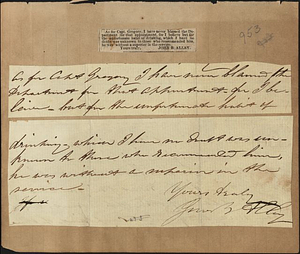 As for Capt. Gregory, I have never blamed the De-
partment for that appointment, for I believe but for
the unfortunate habit of drinking, which I have no
doubt was unknown to those who recommended him,
he was without a superior in the service.
Yours truly, JOHN B. ALLEY.
953
As for Capt Gregory I have never blamed the
Department for that appointment for I be-
lieve - but for the unfortunate habit of
drinking - which I have no doubt was un-
known to those who recommended him,
he was without a superior in the
service -
Yours truly
John B Alley